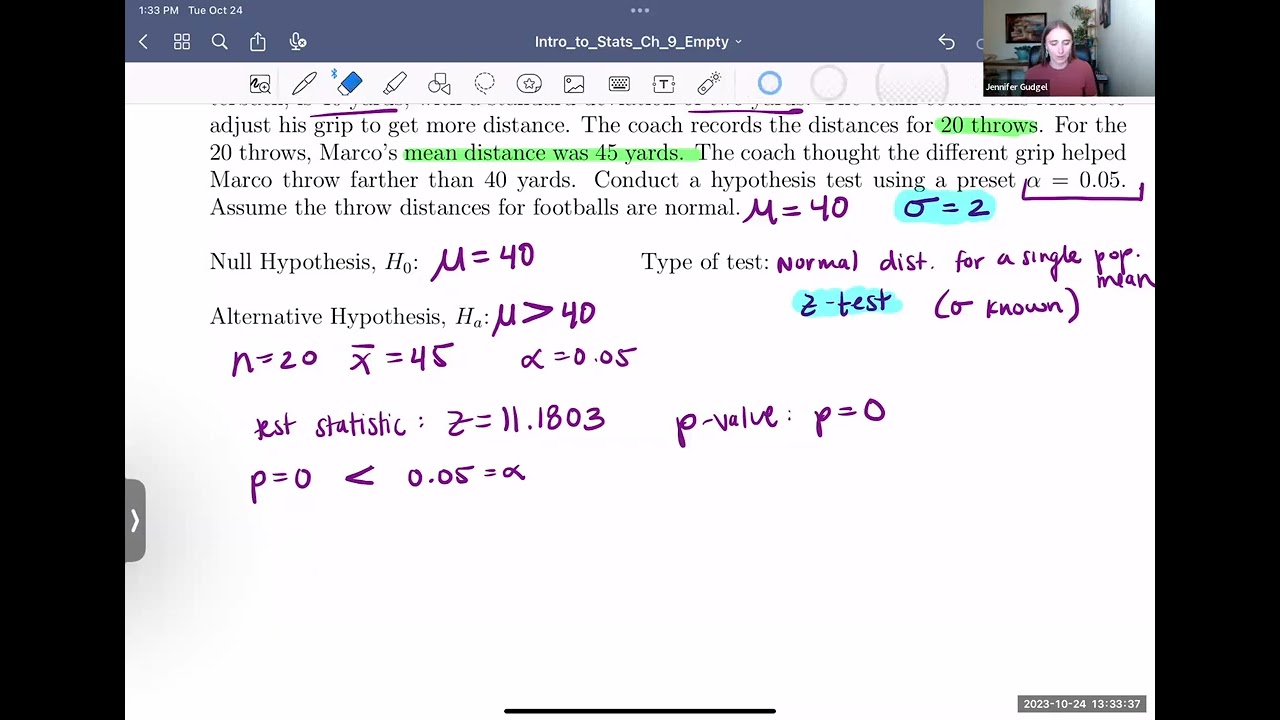 1:33 PM Tue Oct 24
Intro_to_Stats_Ch_9_Empty
Jennifer Gudgel
adjust his grip to get more distance. The coach records the distances for 20 throws. For the
20 throws, Marco's mean distance was 45 yards. The coach thought the different grip helped
Marco throw farther than 40 yards. Conduct a hypothesis test using a preset α = 0.05.
Assume the throw distances for footballs are normal. μ = 40 σ = 2
Null Hypothesis, H₀: μ = 40 Type of test: Normal dist. for a single pop. mean
z-test (σ known)
Alternative Hypothesis, Hₐ: μ > 40
n = 20 x̄ = 45 α = 0.05
test statistic: z = 11.1803 p-value: p = 0
p = 0 < 0.05 = α
2023-10-24 13:33:37